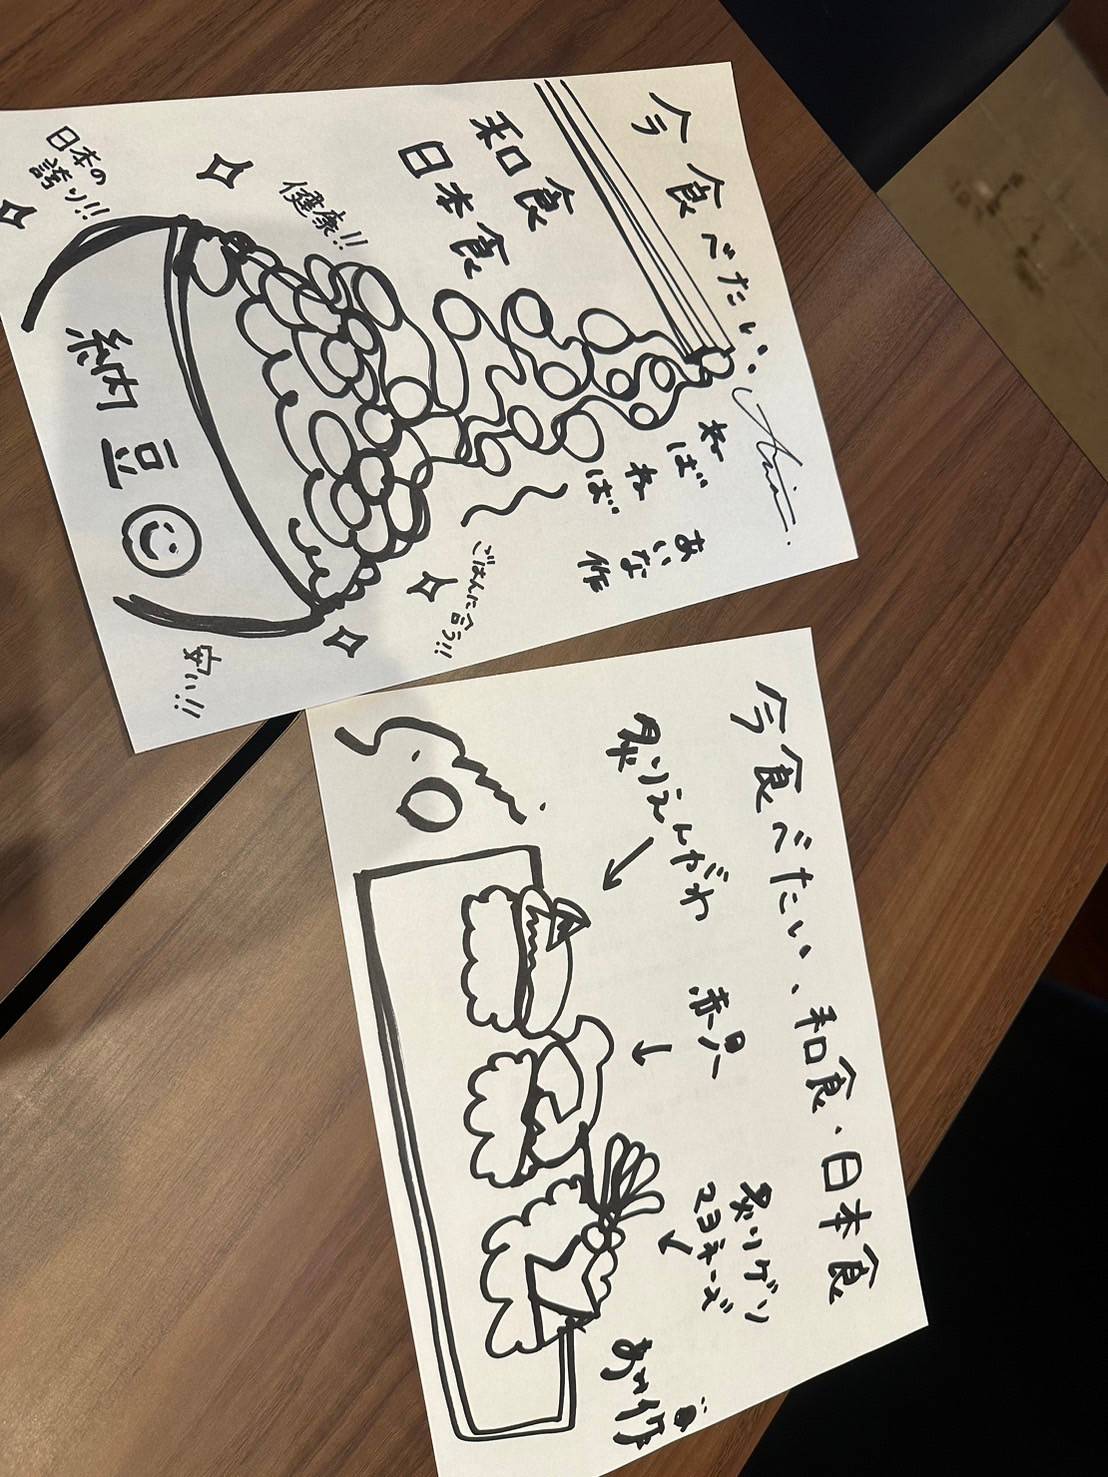 今食べたい、
和食
日本食
日本の
誇り!!
健康!!
ねば
ねば
あいな
作
納豆
ごはんに合う!!
安い!!
今食べたい、和食・日本食
炙りえんがわ
赤貝
炙りゲソ
マヨネーズ
作